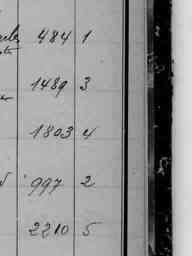 484 1
1489 3
1803 4
997 2
2210 5